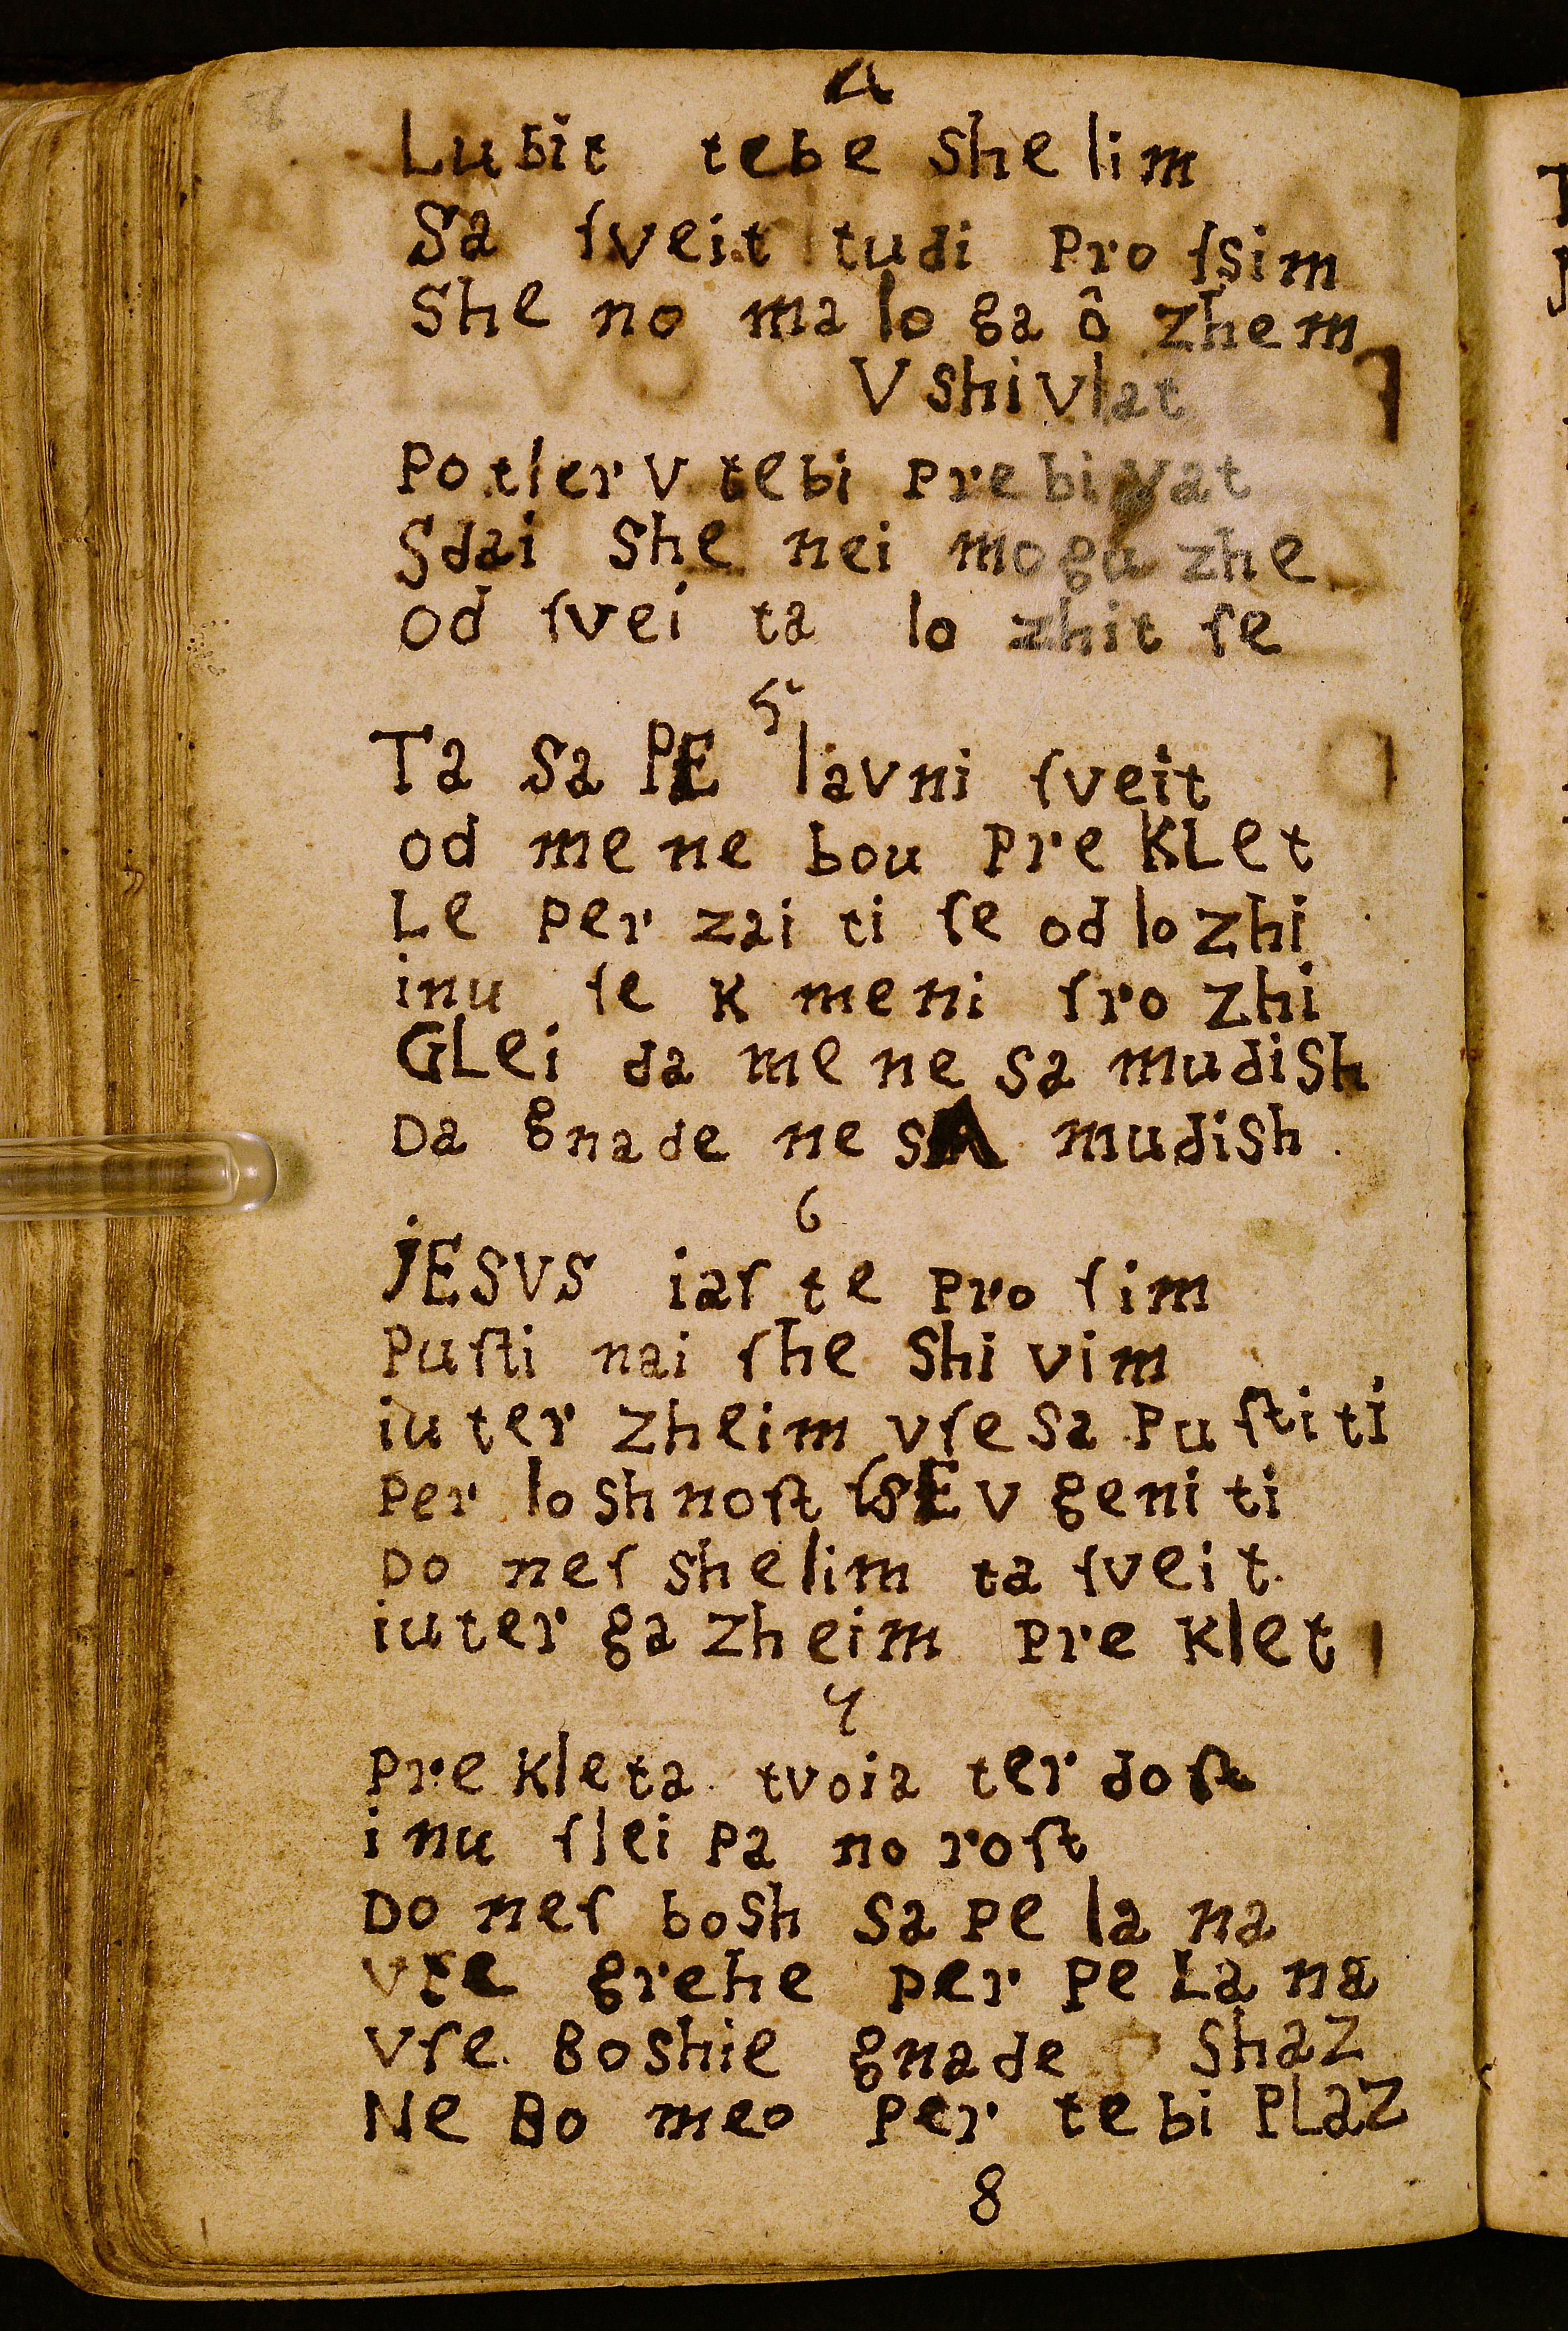 4
Lubit tebe shelim
Sa ſveit tudi Pro ſsim
She no ma lo ga ô zhem
V shi vlat
Po tler v tebi Pre bi vat
Sdai she nei mogu zhe
od ſvei ta lo zhit ſe
5
Ta sa PE lavni ſveit
od me ne bou Pre KLet
Le Per zai ti ſe od lo zhi
inu ſe K meni ſro zhi
GLei da me ne sa mudish
Da gnade ne sA mudish.
6
jESVS iaſ te Pro ſim
Puſti nai ſhe Shi vim
iu ter Zheim vſe sa Pu ſti ti
Per lo sh noſt ſsE v geni ti
Do neſ shelim ta ſvei t.
iuter ga Zheim Pre Klet
7
Pre Kleta tvoia ter doſt
inu ſlei Pa no roſt
Do neſ bosh sa Pe la na
vſe grehe Per Pe La na
vſe Boshie gnade ShaZ
Ne Bo meo Per te bi PLaZ
8